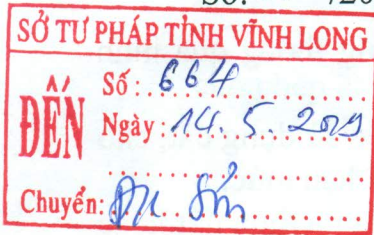 Số: /20
SỞ TƯ PHÁP TỈNH VĨNH LONG
ĐẾN
Số: 664
Ngày: 14. 5. 2019
Chuyển: